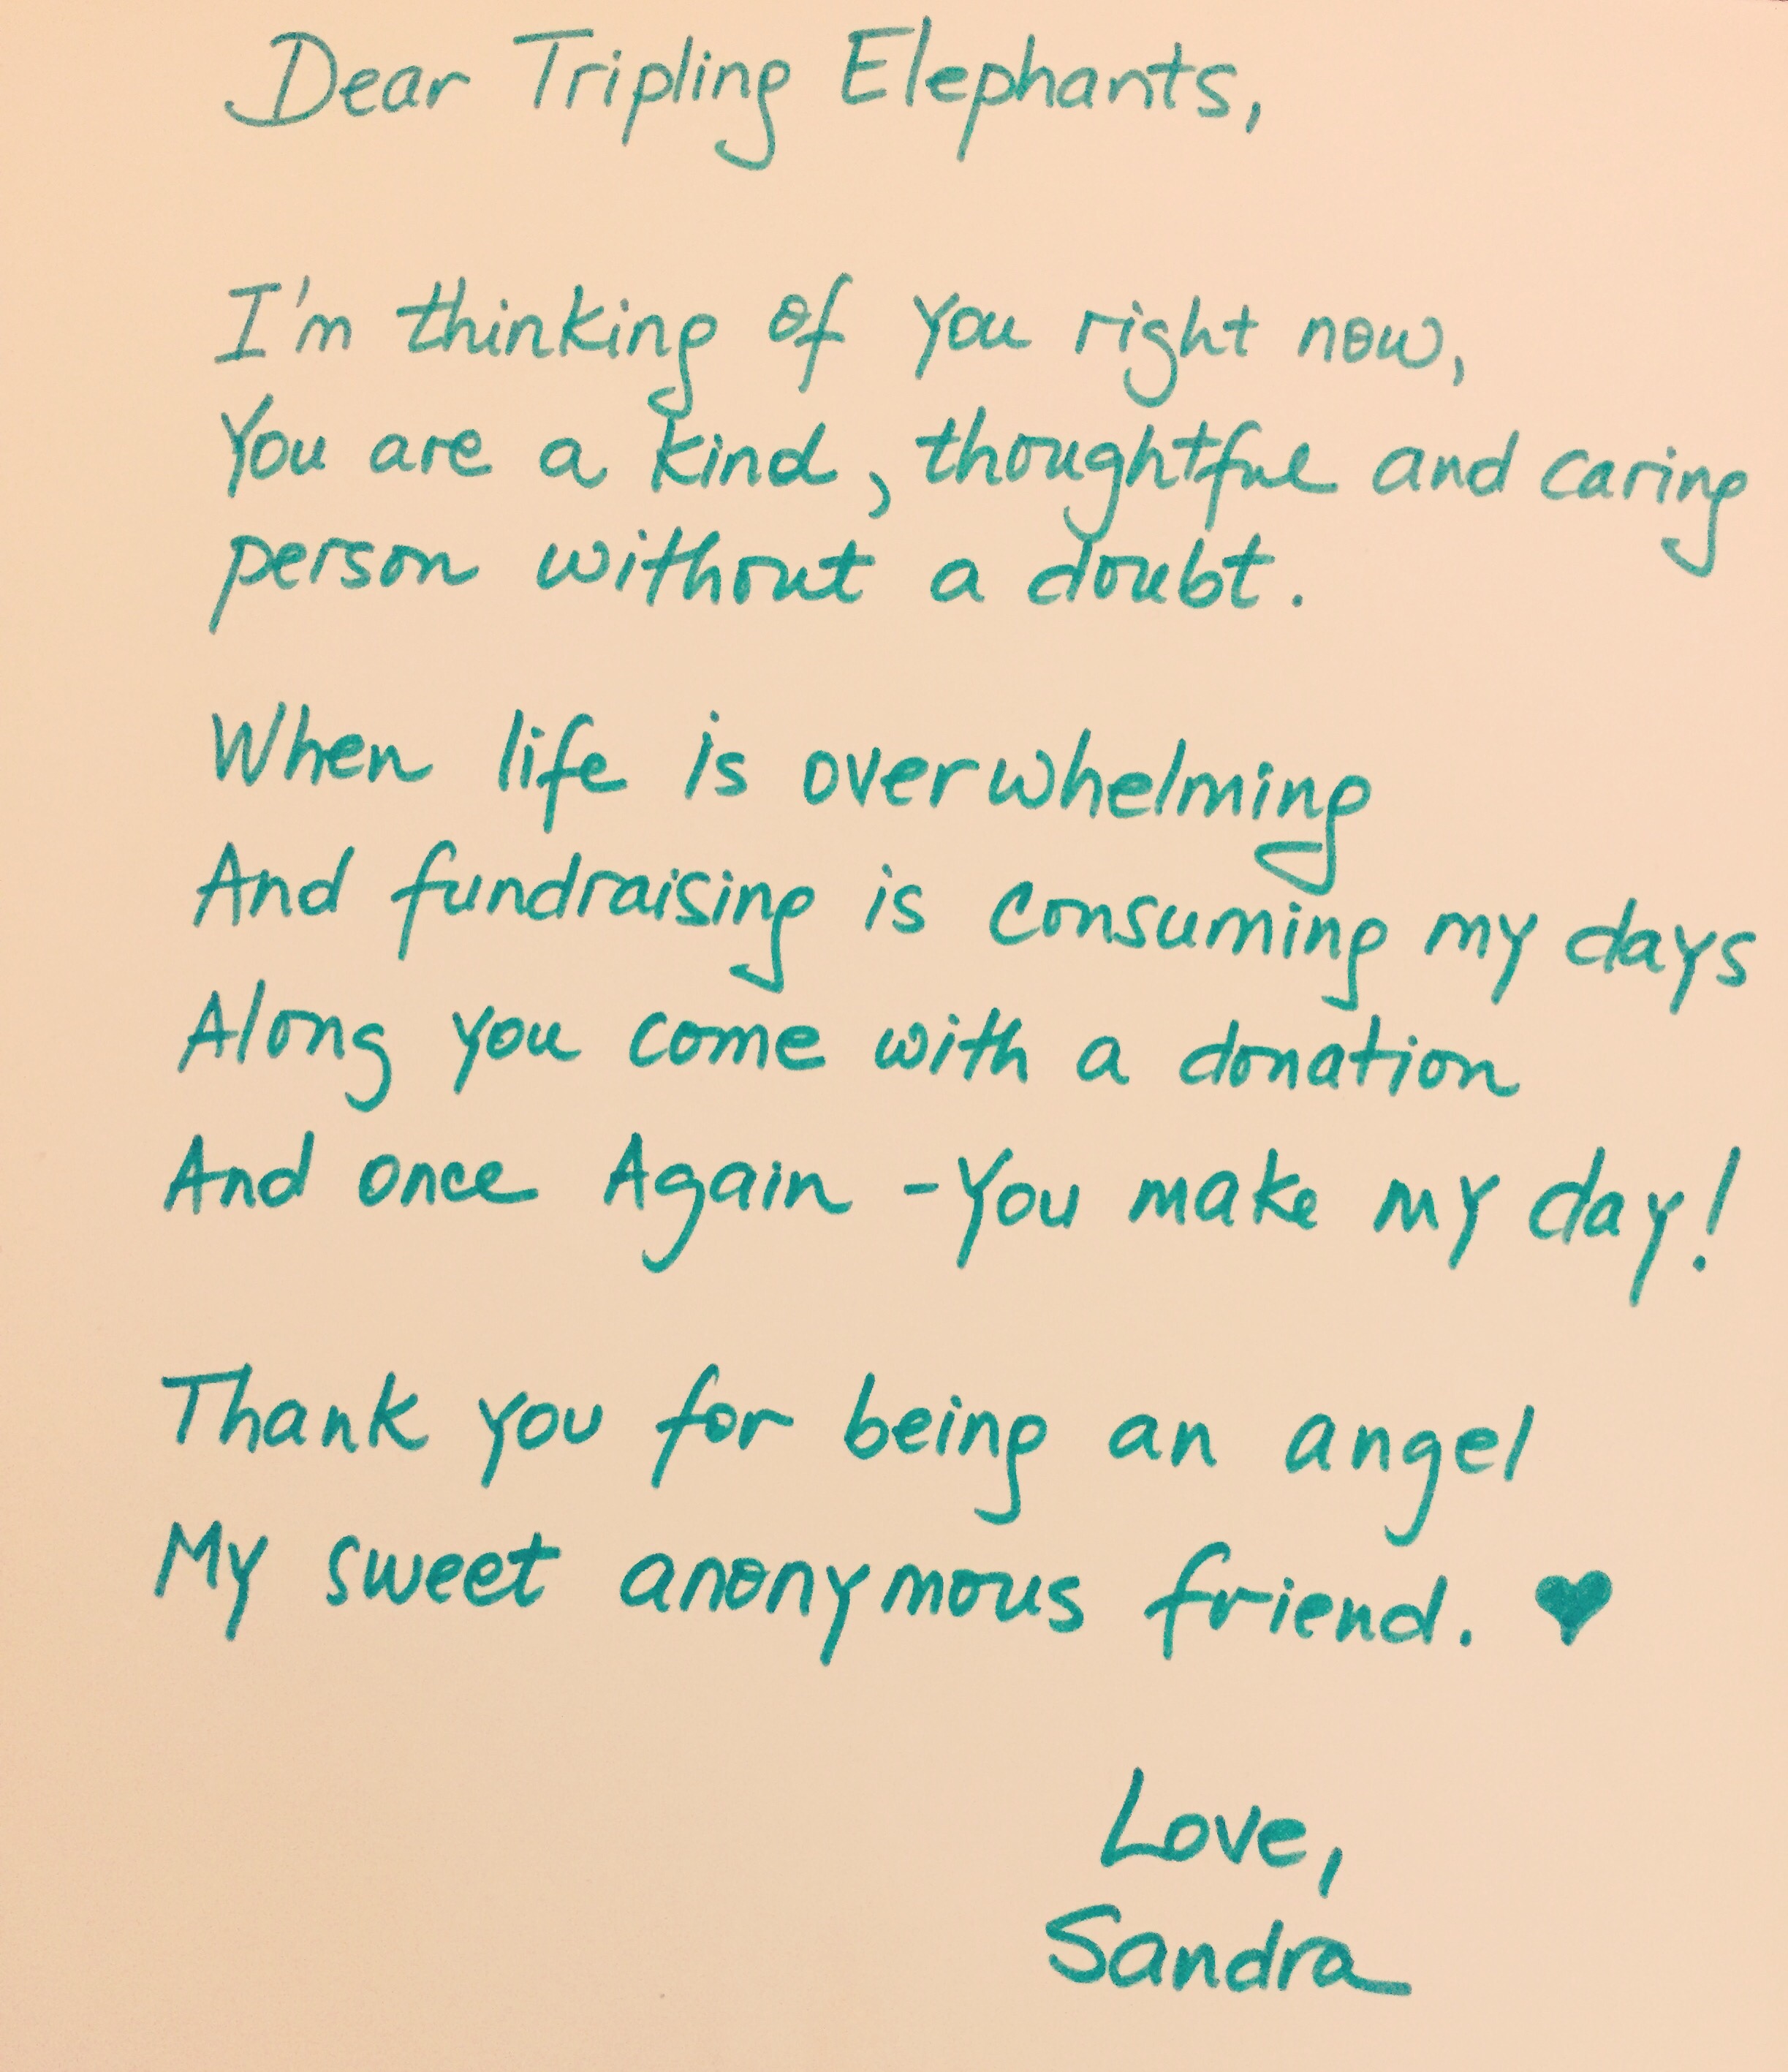 Dear Tripling Elephants,
I'm thinking of you right now,
You are a kind, thoughtful and caring
person without a doubt.
When life is overwhelming
And fundraising is consuming my days
Along you come with a donation
And once Again - You make my day!
Thank you for being an angel
My sweet anonymous friend. ♥
Love,
Sandra